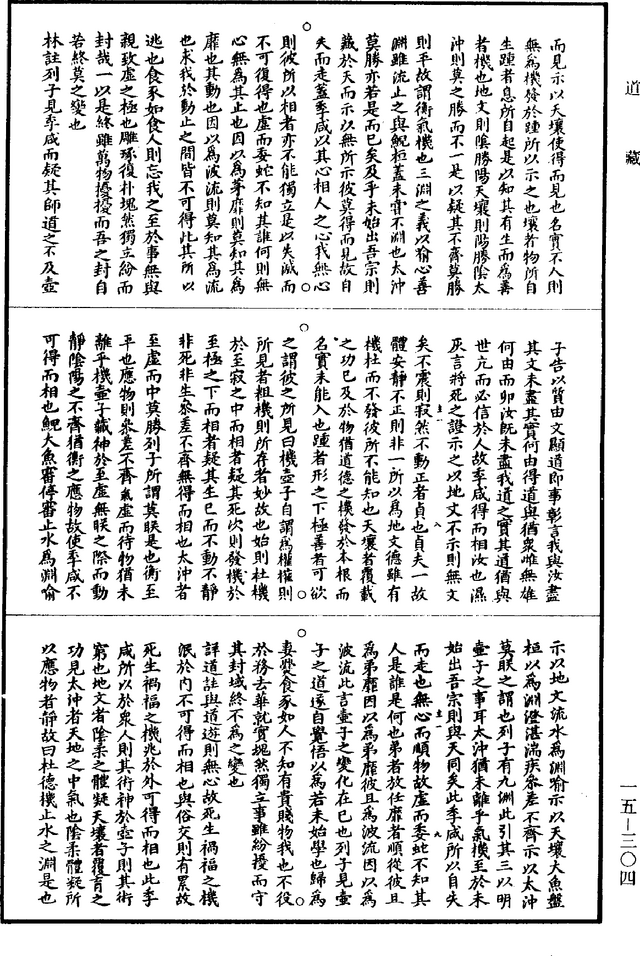 道藏
而見示以天壤使得而見也名實不入則
無為機發於踵所以示之也壤若物所自
生踵者息所自起是以知其有生而為善
者機也地文則陰勝陽天壤則陽勝陰太
沖則莫之勝而不一是以疑其不齊莫勝
則平故謂衡氣機也三淵之義以喻心善
淵雖流止之與鯢桓蓋未嘗不淵也太沖
莫勝亦若是而已矣及乎未始出吾宗則
藏於天而示以無所示彼莫得而見故自
失而走蓋季咸以其心相人之心我無心
則彼所以相者亦不能獨立是以失滅而
不可復得也虛而委蛇不知其誰何則無
心無為其止也因以為茅靡則莫知其為
靡也其動也因以為波流則莫知其為流
也求我於動止之間皆不可得此其所以
逃也食豕如食人則忘我之至於事無與
親致虛之極也雕琢復朴塊然獨立紛而
封哉一以是終雖萬物擾擾而吾之封自
若終莫之變也
林註列子見季咸而疑其師道之不及壺
子告以質由文顯道即事彰言我與汝盡
其文未盡其實何由得道與猶衆雌無雄
何由而卵汝既未盡我道之實其道猶與
世亢而必信於人故季咸得而相汝也濕
灰言將死之證示之以地文不示則無文
矣不震則寂然不動正者貞也貞夫一故
體安靜不正則非一所以為地文德雖有
機杜而不發彼所不能知也天壤者覆載
之功已及於物猶道德之機發於本根而
名實未能入也踵者形之下極善者可欲
之謂彼之所見曰機壺子自謂為權權則
所見者粗機則所存者妙故也始則杜機
於至寂之中而相者疑其死次則發機於
至極之下而相者疑其生已而不動不靜
非死非生參差不齊無得而相也太沖者
至虛而中莫勝列子所謂莫眹是也衡至
平也應物則參差不齊氣虛而待物猶未
離乎機壺子藏神於至虛無眹之際而動
靜陰陽之不齊猶衡之應物故使季咸不
可得而相也鯢大魚審停審止水為淵喻
示以地文流水為淵喻示以天壤大魚盤
桓以為淵澄湛湍疾參差不齊示以太沖
莫眹之謂也列子有九淵此引其三以明
壺子之事耳太沖猶未離乎氣機至於未
始出吾宗則與天同矣此季咸所以自失
而走也無心而順物故虛而委蛇不知其
人是誰是何也弟者放任靡者順從彼且
為弟靡因以為弟靡彼且為波流因以為
波流此言壺子之變化在已也列子見壺
子之道遂自覺悟以為若未始學也歸為
妻爨食豕如人不知有貴賤物我也不役
於務去華就實塊然獨立事雖紛擾而守
其封域終不為之變也
詳道註與道遊則無心故死生禍福之機
泯於內不可得而相也與俗交則有累故
死生禍福之機兆於外可得而相也此季
咸所以於衆人則其術神於壺子則其術
窮也地文者陰柔之體凝天壤者覆育之
功見太沖者天地之中氣也陰柔體凝所
以應物者靜故曰杜德機止水之淵是也
一五—三〇四